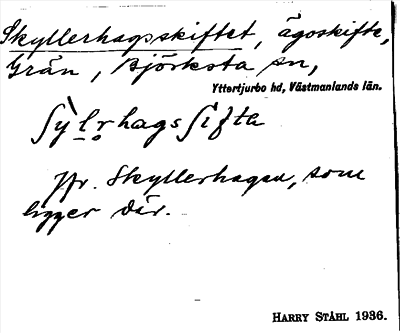 Skyllerhagsskiftet, ägoskifte,
Grän, Björksta sn,
Yttertjurbo hd, Västmanlands län.
ʃỳlr̥hagsʃifta
Jfr. Skyllerhagen, som
ligger där.
HARRY STÅHL 1936.